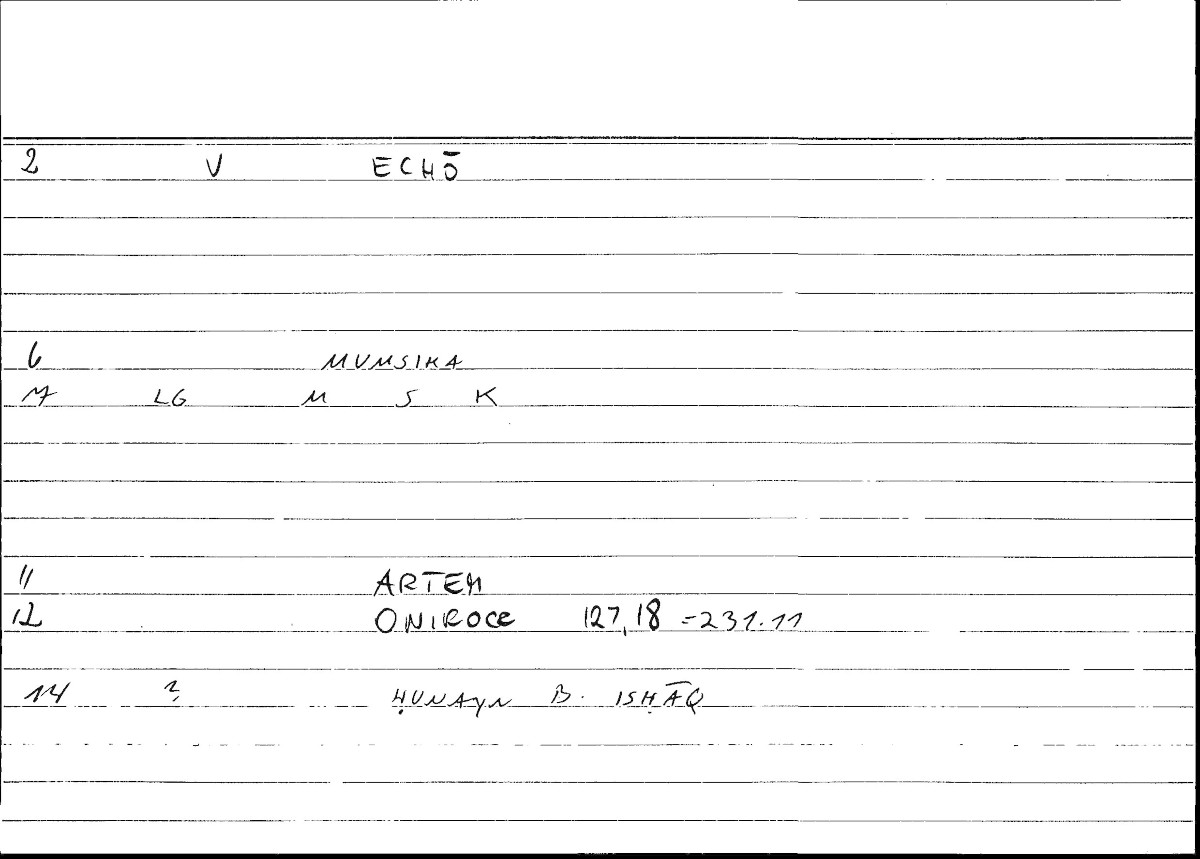 2 V ECHŌ
6 MUMSIKA
7 LG M S K
11 ARTEM
12 ONIROCR 127,18 = 231.11
14 ? ḤUNAYN B. ISḤĀQ